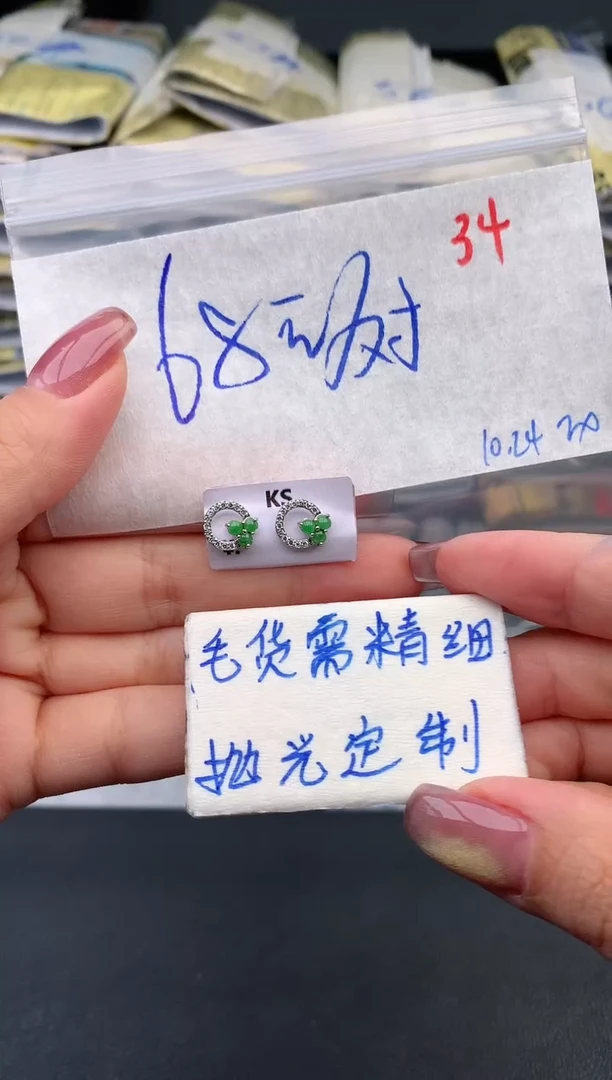 34
68元/对
10.24
KS
毛货需精细
抛光定制